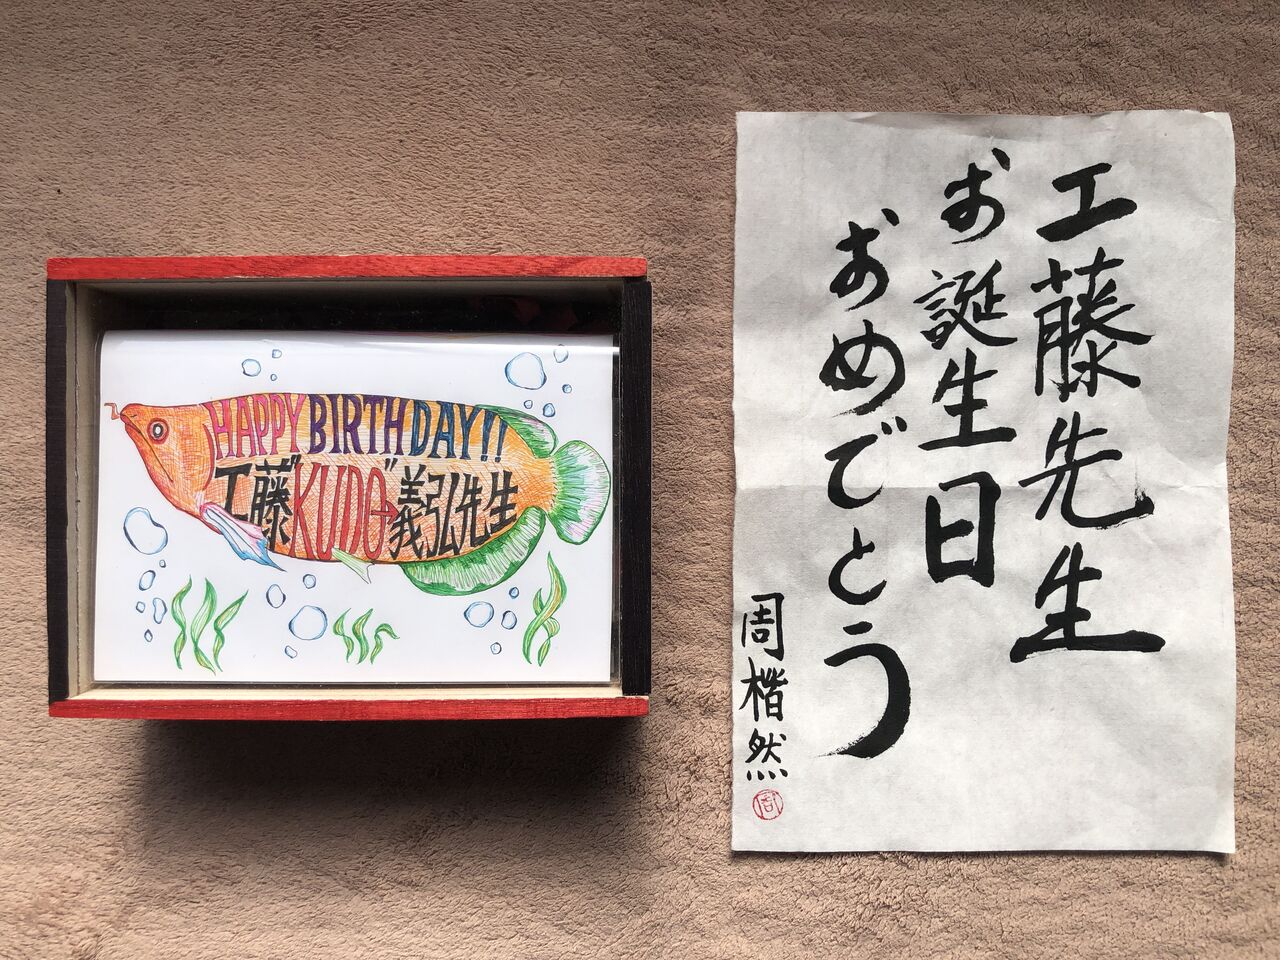 HAPPY BIRTHDAY!!
工藤"KUDO"→義弘先生
工藤先生
お誕生日
おめでとう
周楷然
周